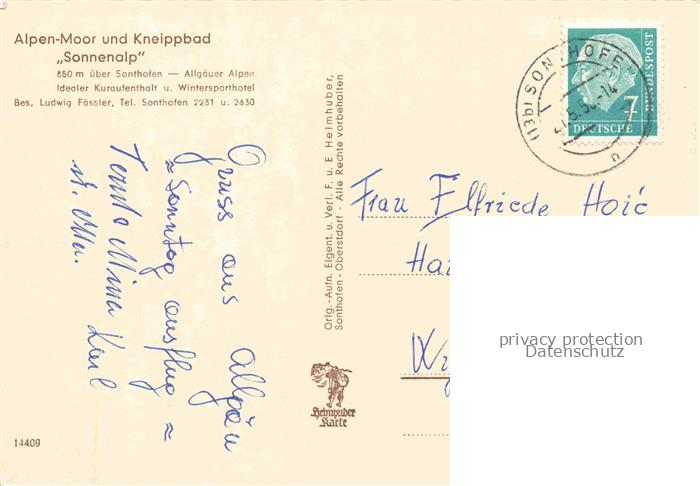 Alpen-Moor und Kneippbad
„Sonnenalp"
850 m über Sonthofen — Allgäuer Alpen
Idealer Kuraufenthalt u. Wintersporthotel
Bes. Ludwig Fässler, Tel. Sonthofen 2231 u. 2630
Gruss aus Allgäu
= Sonntag ausflug =
Nina Karl
Orig.-Aufn. Eigent. u. Verl. F. u. E. Heimhuber,
Sonthofen - Oberstdorf - Alle Rechte vorbehalten
Heimhuber
Karte
14409
(13b) SONTHOFEN
DEUTSCHE
BUNDESPOST
7
Frau Elfriede Hoić
privacy protection
Datenschutz